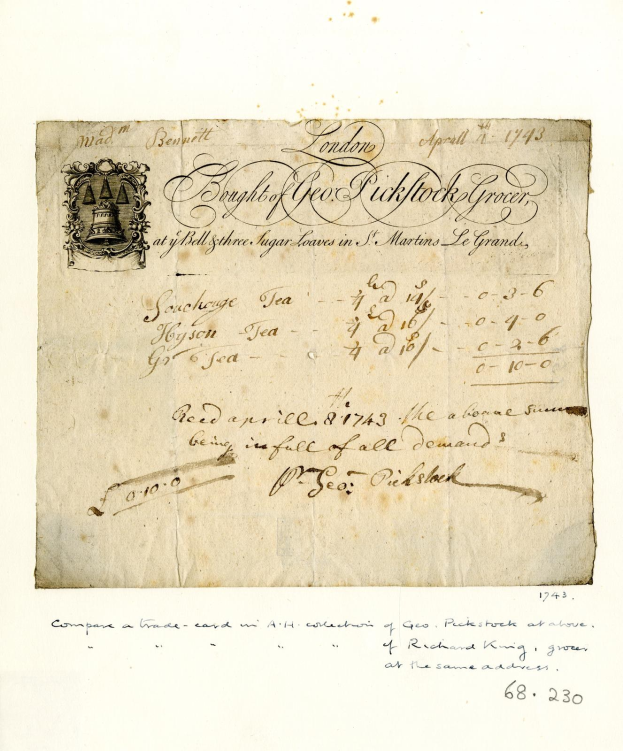 Mad.m Bennett Aprill 1743
London
Bought of Geo: Pickstock Grocer,
at ye Bell & three Sugar Loaves in St. Martins Le Grand,
Souchonge Tea - - - ¼ a 14/ - - 0 - 3 - 6
Hyson Tea - - ¼ a 16/ - - 0 - 4 - 0
Gr Tea - - ¼ a 10/ - - 0 - 2 - 6
0 - 10 - 0
Recd aprill 8th 1743 the aboue Summ
being in full of all demands
£ 0-10-0
Geo: Pickstock
1743.
Compare a trade-card in A.H. collection of Geo. Pickstock at above.
" " " " " of Richard King, grocer
at the same address.
68.230